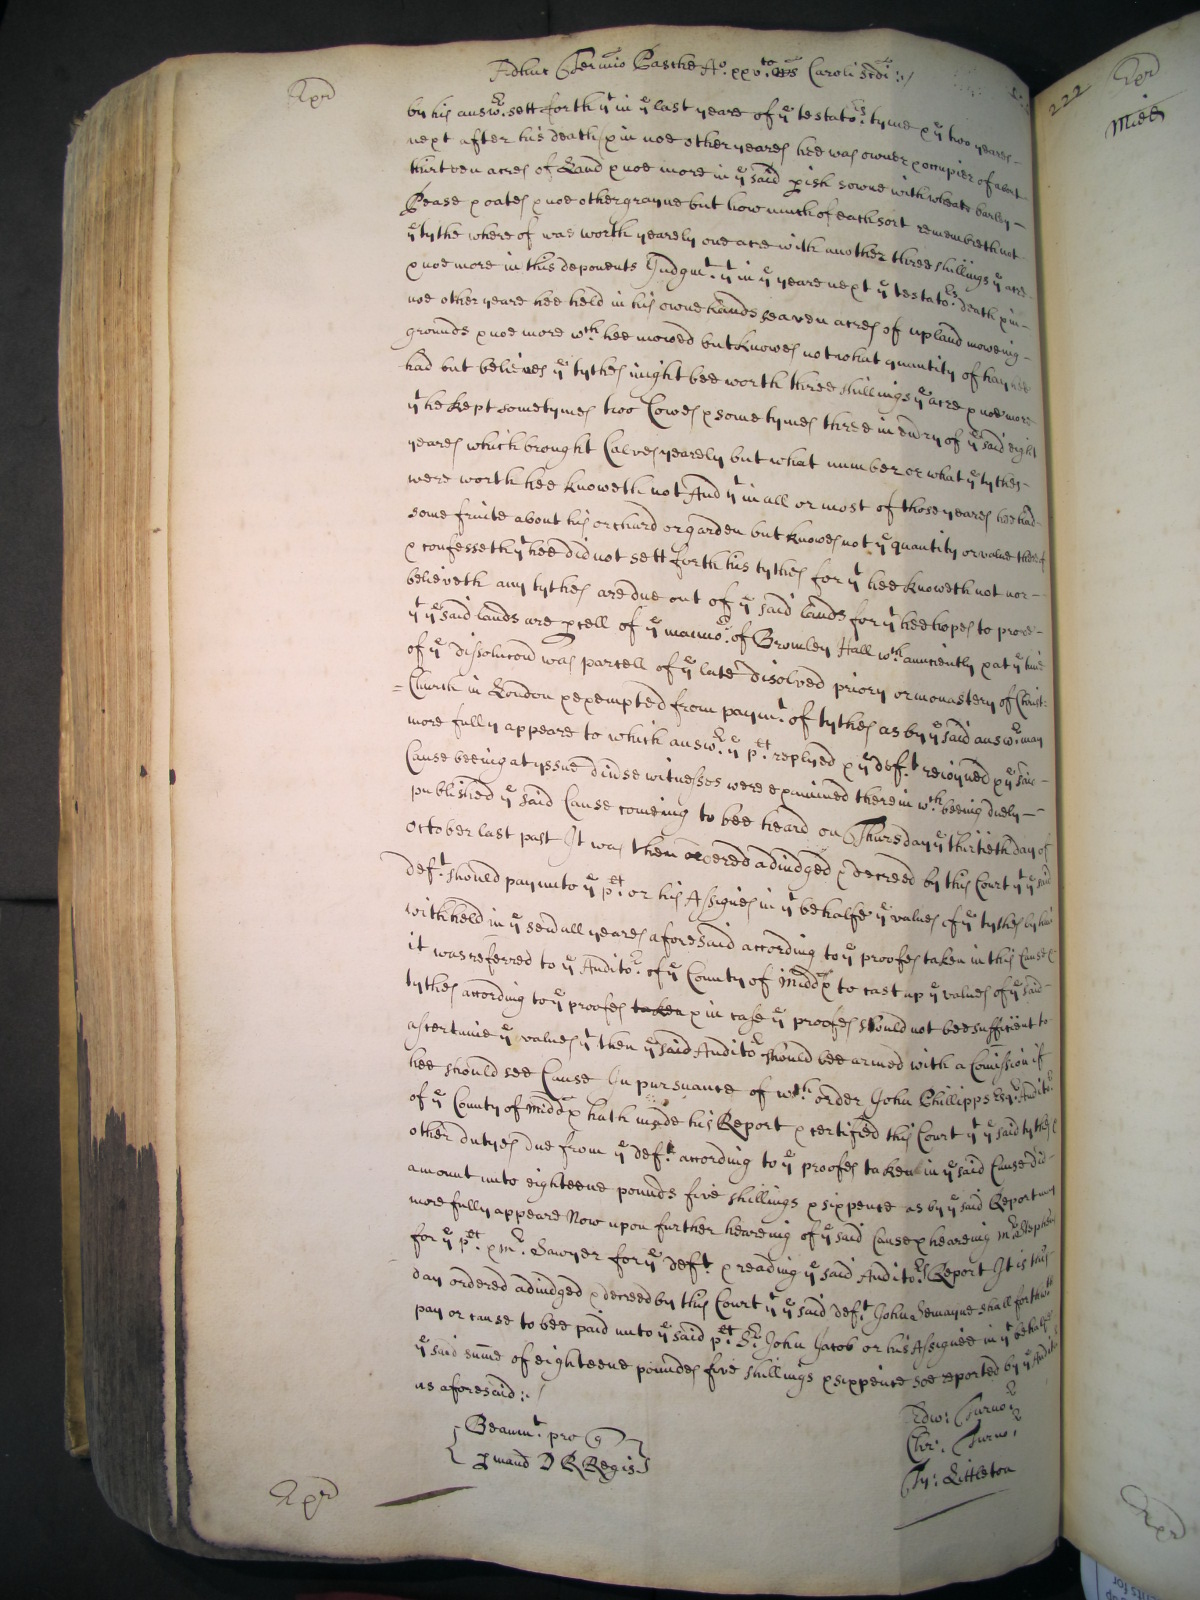 Adhuc Termio Pasche Ao. xxvto. Caroli Scdi :/
Exr
by his answr. sett forth yt in ye last yeare of ye testators. tyme & ye two yeares
next after his death & in noe other yeares hee was owner & occupier of about
thirteen acres of Land & noe more in ye said pish sowne with wheate barley
Pease & oates & noe other grayne but how much of each sort remembreth not
ye tythe whereof was worth yearely one acre with another three shillings ye acre
& noe more in this deponents Judgmt. yt in ye yeare next ye testators. death & in
noe other yeare hee held in his owne hands seaven acres of upland moweing
grounds & noe more wch. hee mowed but knowes not what quantity of hay hee
had but believes ye tythes might bee worth three shillings ye acre & noe more
yt he kept sometymes two Cowes & some tymes three in every of ye said eight
yeares which brought Calves yearely but what number or what ye tythes
were worth hee knoweth not And yt in all or most of those yeares hee had
some fruite about his orchard or garden but knowes not ye quantity or value thereof
& confesseth yt hee did not sett forth his tythes for yt hee knoweth not nor
believeth any tythes are due out of ye said lands for yt hee hopes to prove
yt ye said lands are pcell of ye mannor. of Bromley Hall wch. aunciently & at ye time
of ye dissolucon was parcell of ye late disolved priory or monastery of Christ
= Church in London & exempted from paymt. of tythes as by ye said answr. may
more fully appeare to which answr. ye plt. replyed & ye Deft. reioyned & ye said
Cause beeing at yssue divrse witnesses were examined therein wch. beeing duely
published ye said Cause comeing to bee heard on Thursday ye thirtieth day of
October last past It was then ordered adiudged & decreed by this Court yt ye said
Deft. should pay unto ye plt. or his Assignes in yt behalfe ye values of ye tythes by him
withheld in ye sevall yeares aforesaid according to ye proofes taken in this Cause &
it was referred to ye Auditor. of ye County of Middx to cast up ye values of ye said
tythes according to ye proofes taken & in case ye proofes should not bee sufficient to
ascertaine ye values yt then ye said Auditor should bee armed with a Comission if
hee should see Cause In pursuance of wch. order John Phillipps Esqr. Auditor.
of ye County of Middx hath made his Report & certified this Court yt ye said tythes &
other dutyes due from ye Deft. according to ye proofes taken in ye said Cause did
amount unto eighteene pounds five shillings & sixpence as by ye said Report may
more fully appeare Now upon further heareing of ye said Cause & heareing Mr. Stephens
for ye plt. & Mr. Sawyer for ye Deft. & reading ye said Auditors. Report It is this
day ordered adiudged & decreed by this Court yt ye said Deft. John Semayne shall forthwth
pay or cause to bee paid unto ye said plt. Sr. John Jacob or his Assignes in yt behalfe
ye said sume of eighteene poundes five shillings & sixpence soe reported by ye Auditor
as aforesaid :/
Beaumt. pro q
p mand D R Regis
Edw: Turnor
Chr: Turnor
Ty: Littleton
Exr
222
Exr
Midd
Exr